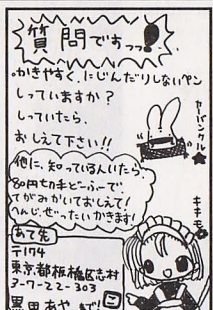 質問ですっっ!
かきやすく、にじんだりしないペン
しっていますか?
しっていたら、
おしえて下さい!!
カーバンクル★
他に、知っている人いたら、
80円切手どーふーで、
てがみかいておしえて!
へんじ、ぜったいかきます!
キキモ
あて先
〒174
東京都板橋区志村
3-7-22-303
黒田あやまで!